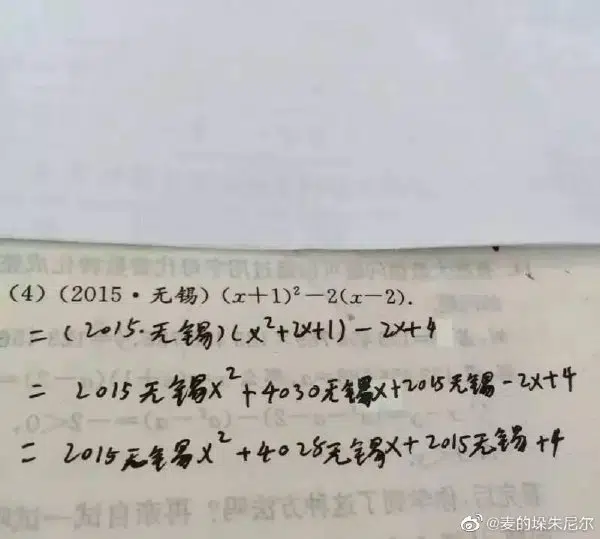 (4)(2015·无锡)(x+1)²-2(x-2).
=(2015·无锡)(x²+2x+1)-2x+4
=2015无锡x²+4030无锡x+2015无锡-2x+4
=2015无锡x²+4028无锡x+2015无锡+4
@麦的垛朱尼尔